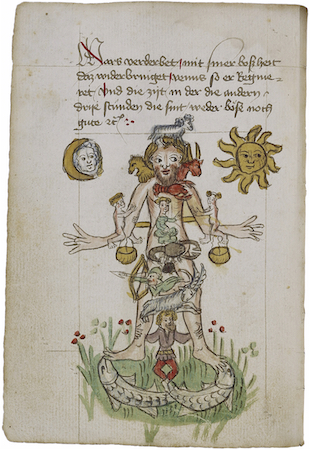 Mars verderbet mit siner bosheit
daz widerbringet venus so er Regnie-
ret Und die zijt in der die andern
drije stunden die sint weder böse noch
gute ec